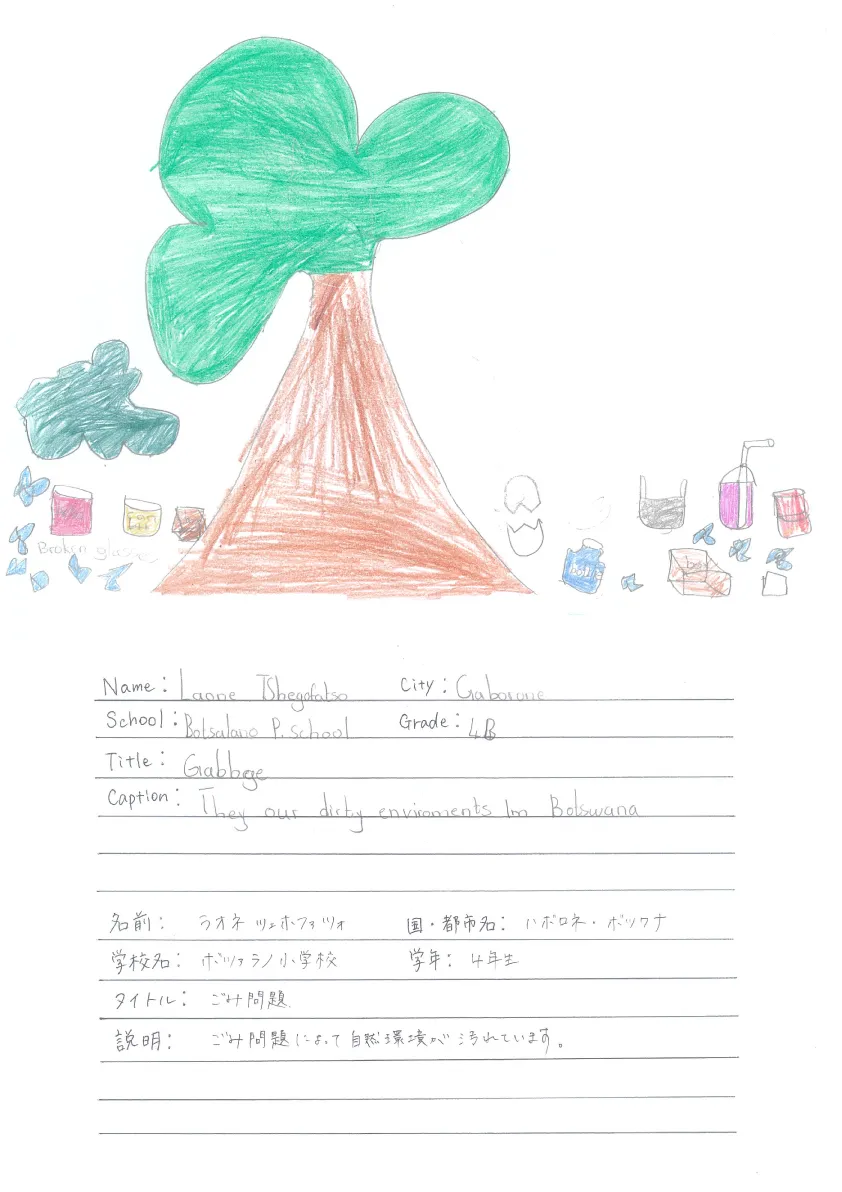 Broken glasses
box
Name: Laone Tshegofatso City: Gaborone
School: Botsalano P. School Grade: 4B
Title: Gabbege
Caption: They our dirty enviroments Im Botswana
名前: ラオネ ツェホファツォ 国・都市名: ハボロネ・ボツワナ
学校名: ボツァラノ小学校 学年: 4年生
タイトル: ごみ問題
説明: ごみ問題によって自然環境が汚れています。